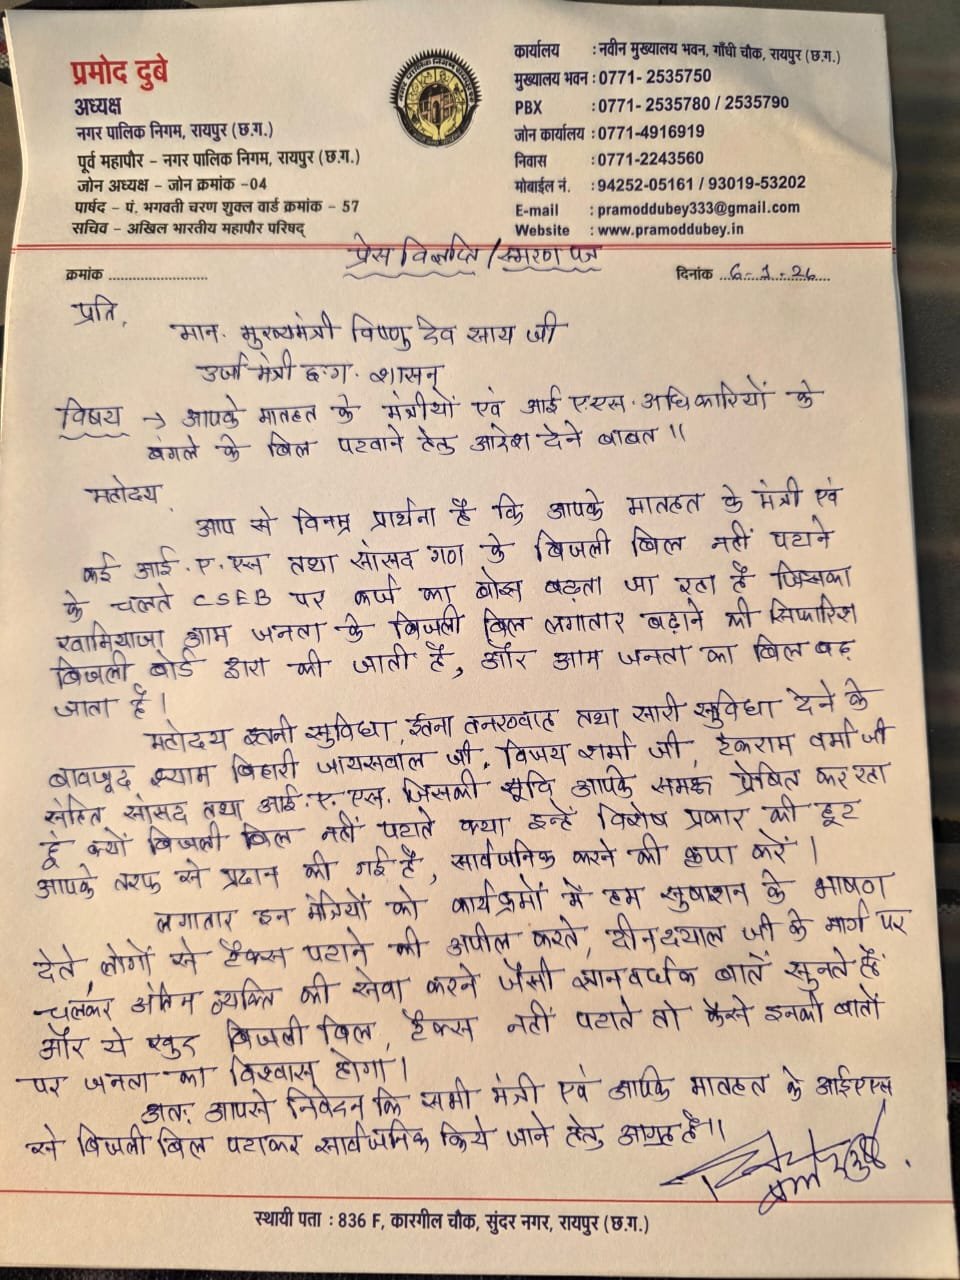 प्रमोद दुबे
अध्यक्ष
नगर पालिक निगम, रायपुर (छ.ग.)
पूर्व महापौर – नगर पालिक निगम, रायपुर (छ.ग.)
जोन अध्यक्ष – जोन क्रमांक -04
पार्षद – पं. भगवती चरण शुक्ल वार्ड क्रमांक - 57
सचिव – अखिल भारतीय महापौर परिषद्
कार्यालय : नवीन मुख्यालय भवन, गाँधी चौक, रायपुर (छ.ग.)
मुख्यालय भवन : 0771- 2535750
PBX : 0771- 2535780 / 2535790
जोन कार्यालय : 0771-4916919
निवास : 0771-2243560
मोबाईल नं. : 94252-05161 / 93019-53202
E-mail : pramoddubey333@gmail.com
Website : www.pramoddubey.in
प्रेस विज्ञप्ति / स्मरण पत्र
क्रमांक ............................ दिनांक ...6-1-26...
प्रति,
मान. मुख्यमंत्री विष्णु देव साय जी
उर्जा मंत्री छ.ग. शासन्
विषय → आपके मातहत के मंत्रीयों एवं आई.एस. अधिकारियों के
बंगले के बिल पटवाने हेतु आदेश देने बाबत ॥
महोदय,
आप से विनम्र प्रार्थना है कि आपके मातहत के मंत्री एवं
कई आई.ए.एस तथा सांसद गण के बिजली बिल नहीं पटाने
के चलते CSEB पर कर्ज का बोझ बढ़ता जा रहा है जिसका
खामियाजा आम जनता के बिजली बिल लगातार बढ़ाने की सिफारिश
बिजली बोर्ड द्वारा की जाती है, और आम जनता का बिल बढ़
जाता है।
महोदय इतनी सुविधा, इतना तनख्वाह तथा सारी सुविधा देने के
बावजूद श्याम बिहारी जायसवाल जी, विजय शर्मा जी, टंकराम वर्मा जी
सहित सांसद तथा आई.ए.एस. जिसकी सूचि आपके समक्ष प्रेषित कर रहा
हूं क्यों बिजली बिल नहीं पटाते क्या इन्हें विशेष प्रकार की छूट
आपके तरफ से प्रदान की गई है, सार्वजनिक करने की कृपा करें।
लगातार इन मंत्रियों को कार्यक्रमों में हम सुशाशन के भाषण
देते, लोगों से टैक्स पटाने की अपील करते, दीनदयाल जी के मार्ग पर
चलकर अंतिम व्यक्ति की सेवा करने जैसी ज्ञानवर्धक बातें सुनते हैं
और ये खुद बिजली बिल, टैक्स नहीं पटाते तो कैसे इनकी बातों
पर जनता का विश्वास होगा।
अतः आपसे निवेदन कि सभी मंत्री एवं आपके मातहत के आईएएस
से बिजली बिल पटाकर सार्वजनिक किये जाने हेतु आग्रह है।।
स्थायी पता : 836 F, कारगील चौक, सुंदर नगर, रायपुर (छ.ग.)